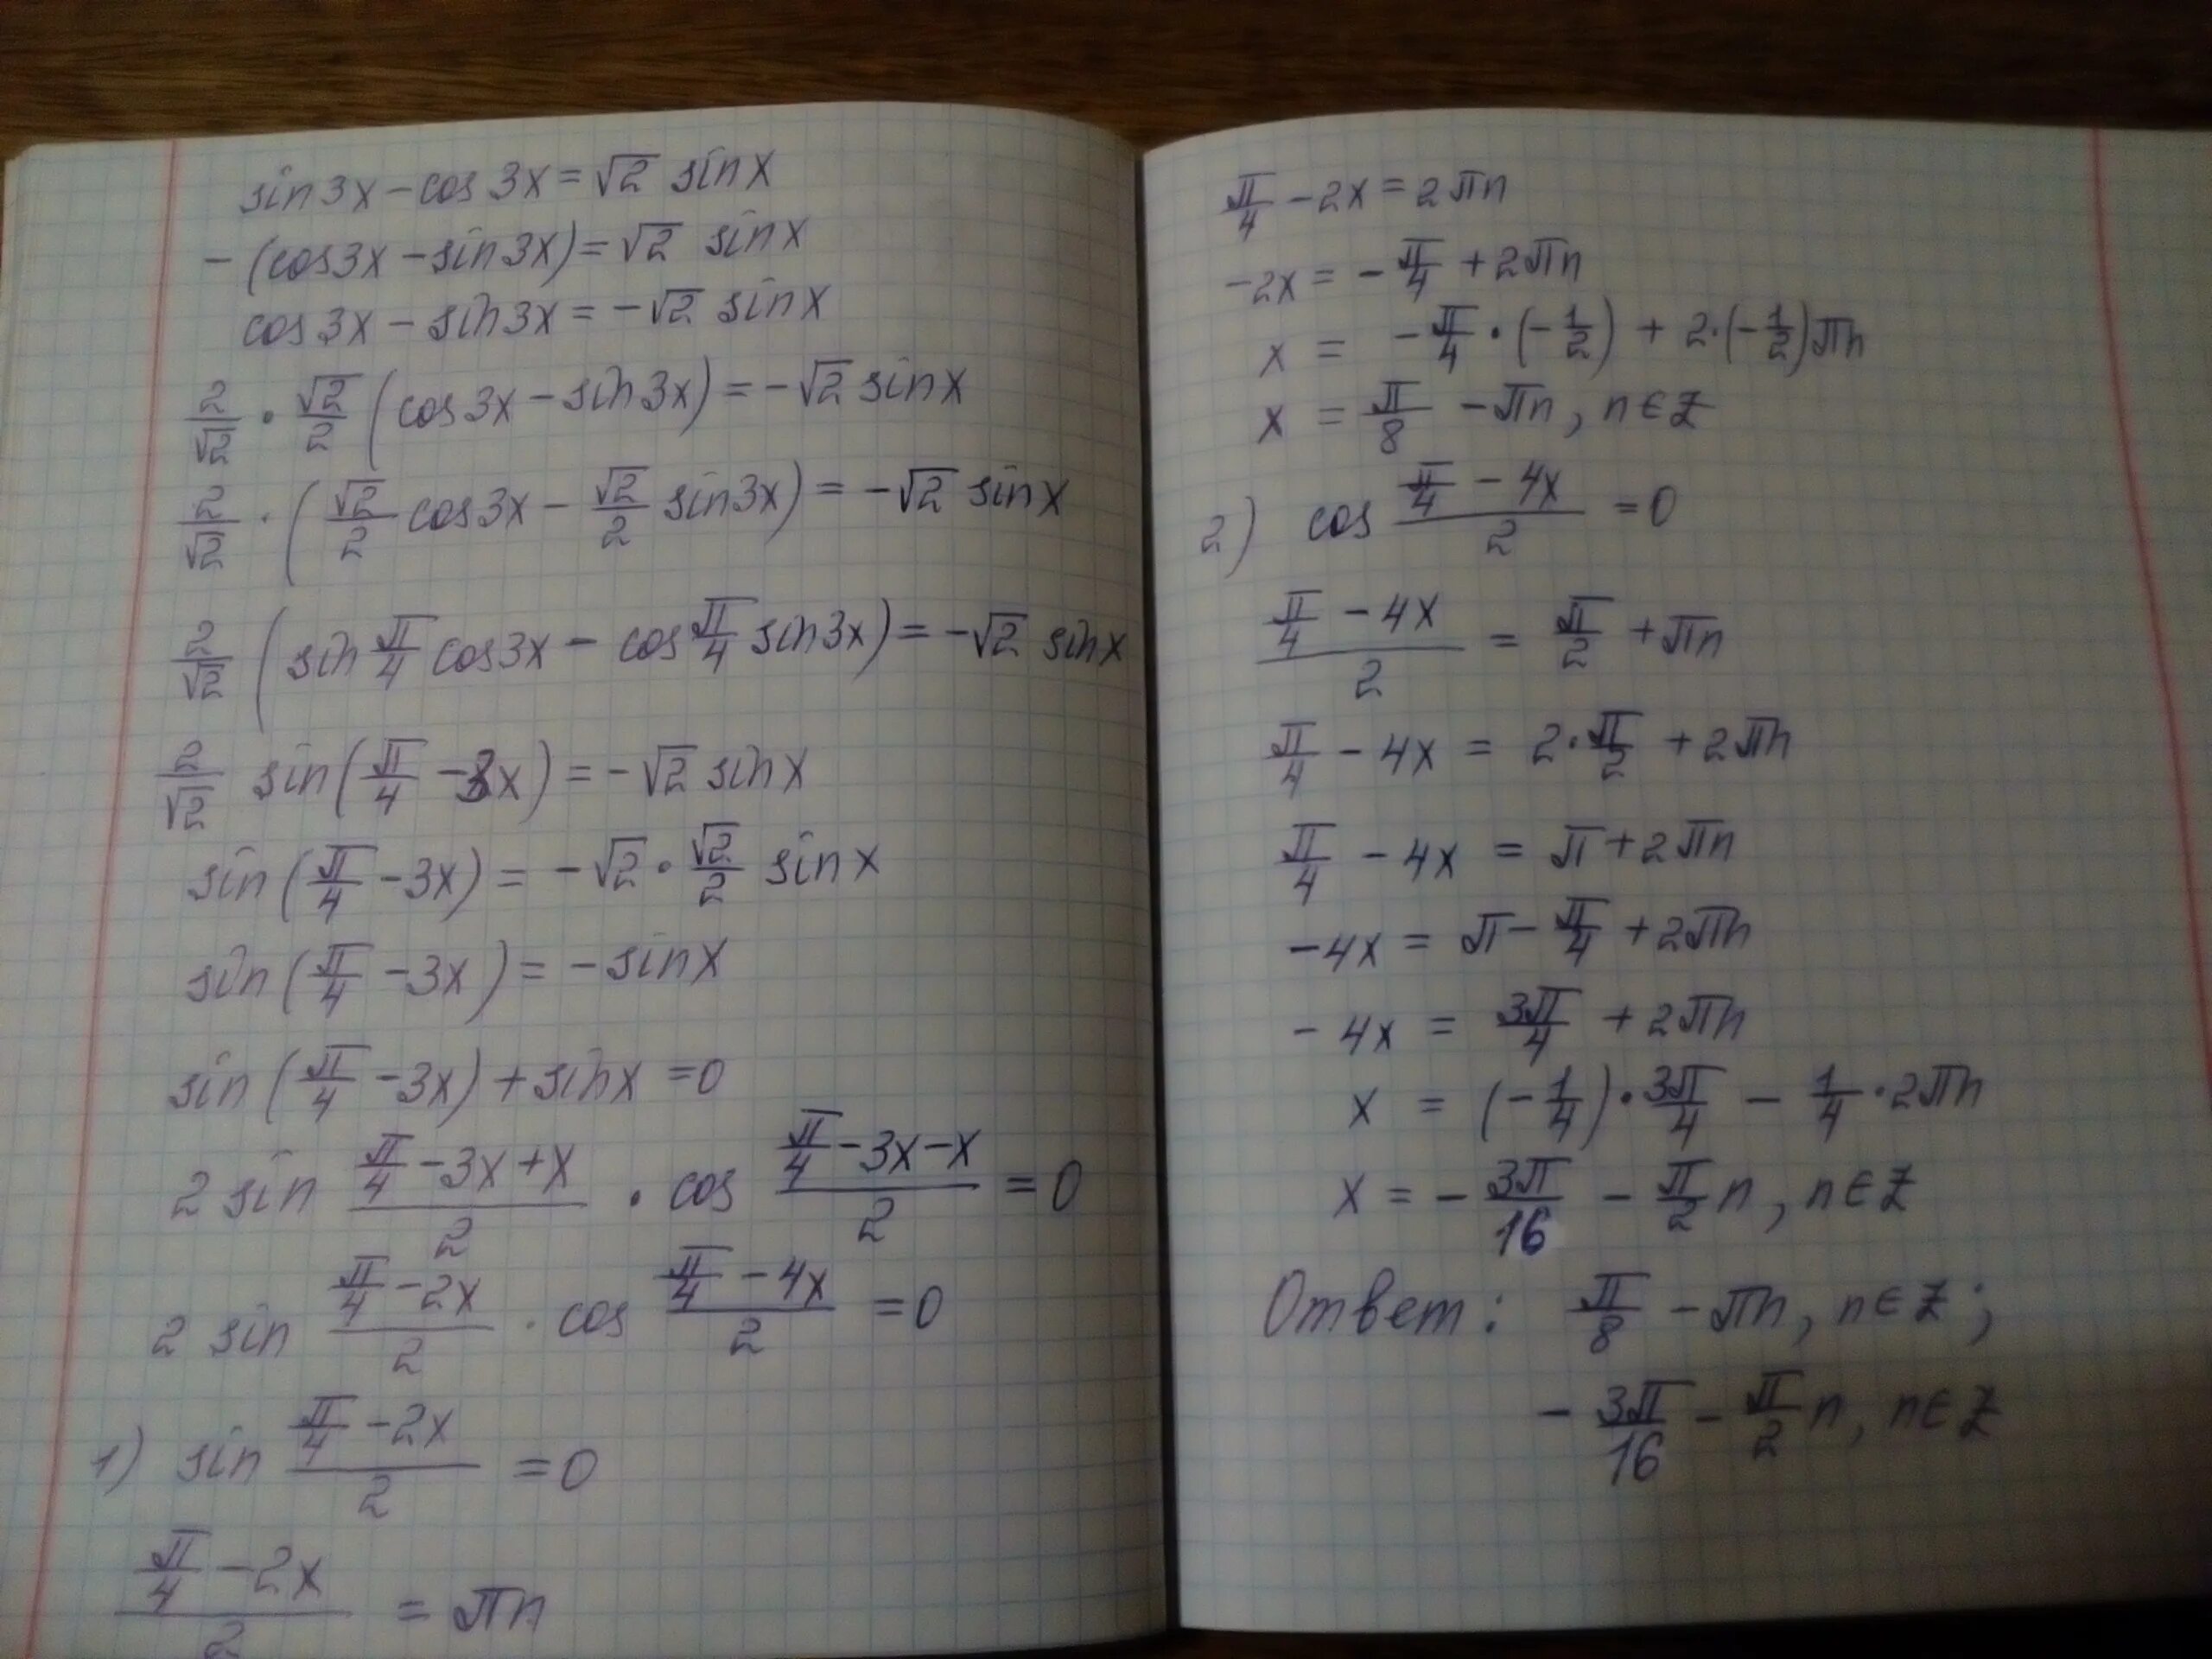 sin3x - cos3x = √2 sinx
- (cos3x - sin3x) = √2 sinx
cos3x - sin3x = -√2 sinx
2/√2 · √2/2 (cos3x - sin3x) = -√2 sinx
2/√2 · (√2/2 cos3x - √2/2 sin3x) = -√2 sinx
2/√2 (sin π/4 cos3x - cos π/4 sin3x) = -√2 sinx
2/√2 sin(π/4 - 3x) = -√2 sinx
sin(π/4 - 3x) = -√2 · √2/2 sinx
sin(π/4 - 3x) = -sinx
sin(π/4 - 3x) + sinx = 0
2 sin (π/4 - 3x + x)/2 · cos (π/4 - 3x - x)/2 = 0
2 sin (π/4 - 2x)/2 · cos (π/4 - 4x)/2 = 0
1) sin (π/4 - 2x)/2 = 0
(π/4 - 2x)/2 = πn
π/4 - 2x = 2πn
-2x = -π/4 + 2πn
x = -π/4 · (-1/2) + 2·(-1/2)πn
x = π/8 - πn, n∈Z
2) cos (π/4 - 4x)/2 = 0
(π/4 - 4x)/2 = π/2 + πn
π/4 - 4x = 2·π/2 + 2πn
π/4 - 4x = π + 2πn
-4x = π - π/4 + 2πn
-4x = 3π/4 + 2πn
x = (-1/4)·3π/4 - 1/4·2πn
x = -3π/16 - π/2 n, n∈Z
Ответ: π/8 - πn, n∈Z;
-3π/16 - π/2 n, n∈Z